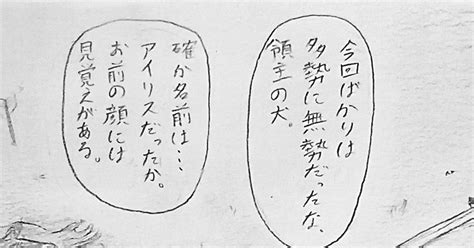 今回ばかりは
多勢に無勢だったな、
領主の犬。
確か名前は…
アイリスだったか。
お前の顔には
見覚えがある。